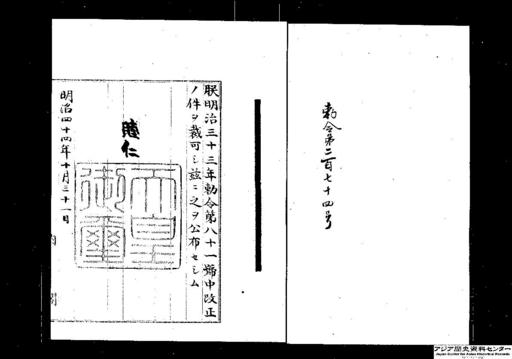 勅令第二百七十四号
朕明治三十三年勅令第八十一號中改正
ノ件ヲ裁可シ茲ニ之ヲ公布セシム
睦仁
天皇御璽
明治四十四年十月三十一日
内閣
アジア歴史資料センター
Japan Center for Asian Historical Records